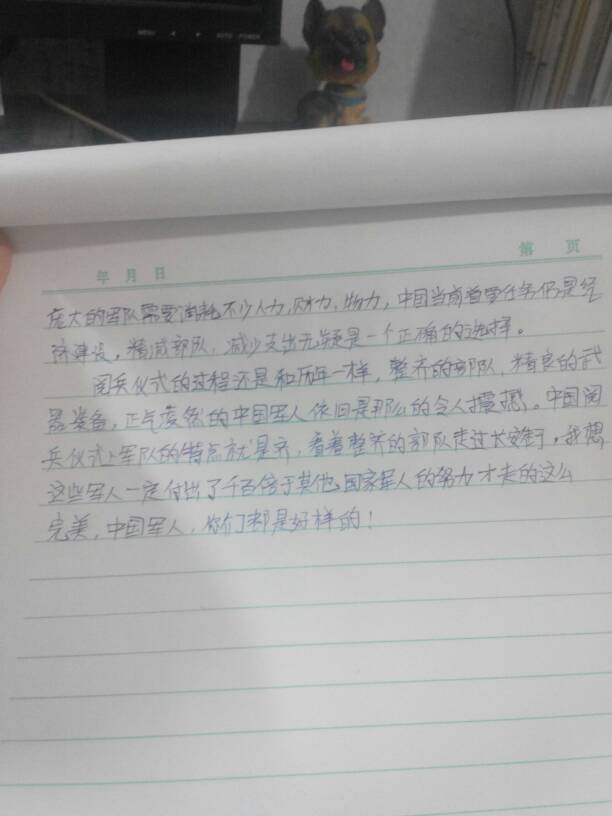 MENU AUTO POWER
年 月 日 第 页
庞大的军队需要消耗不少人力,财力,物力,中国当前首要任务仍是经
济建设。精减部队,减少支出无疑是一个正确的选择。
阅兵仪式的过程还是和历年一样,整齐的部队,精良的武
器装备,正气凌然的中国军人依旧是那么的令人震撼。中国阅
兵仪式上军队的特点就是齐,看着整齐的部队走过长安街。我想
这些军人一定付出了千百倍于其他国家军人的努力才走的这么
完美,中国军人,你们都是好样的!